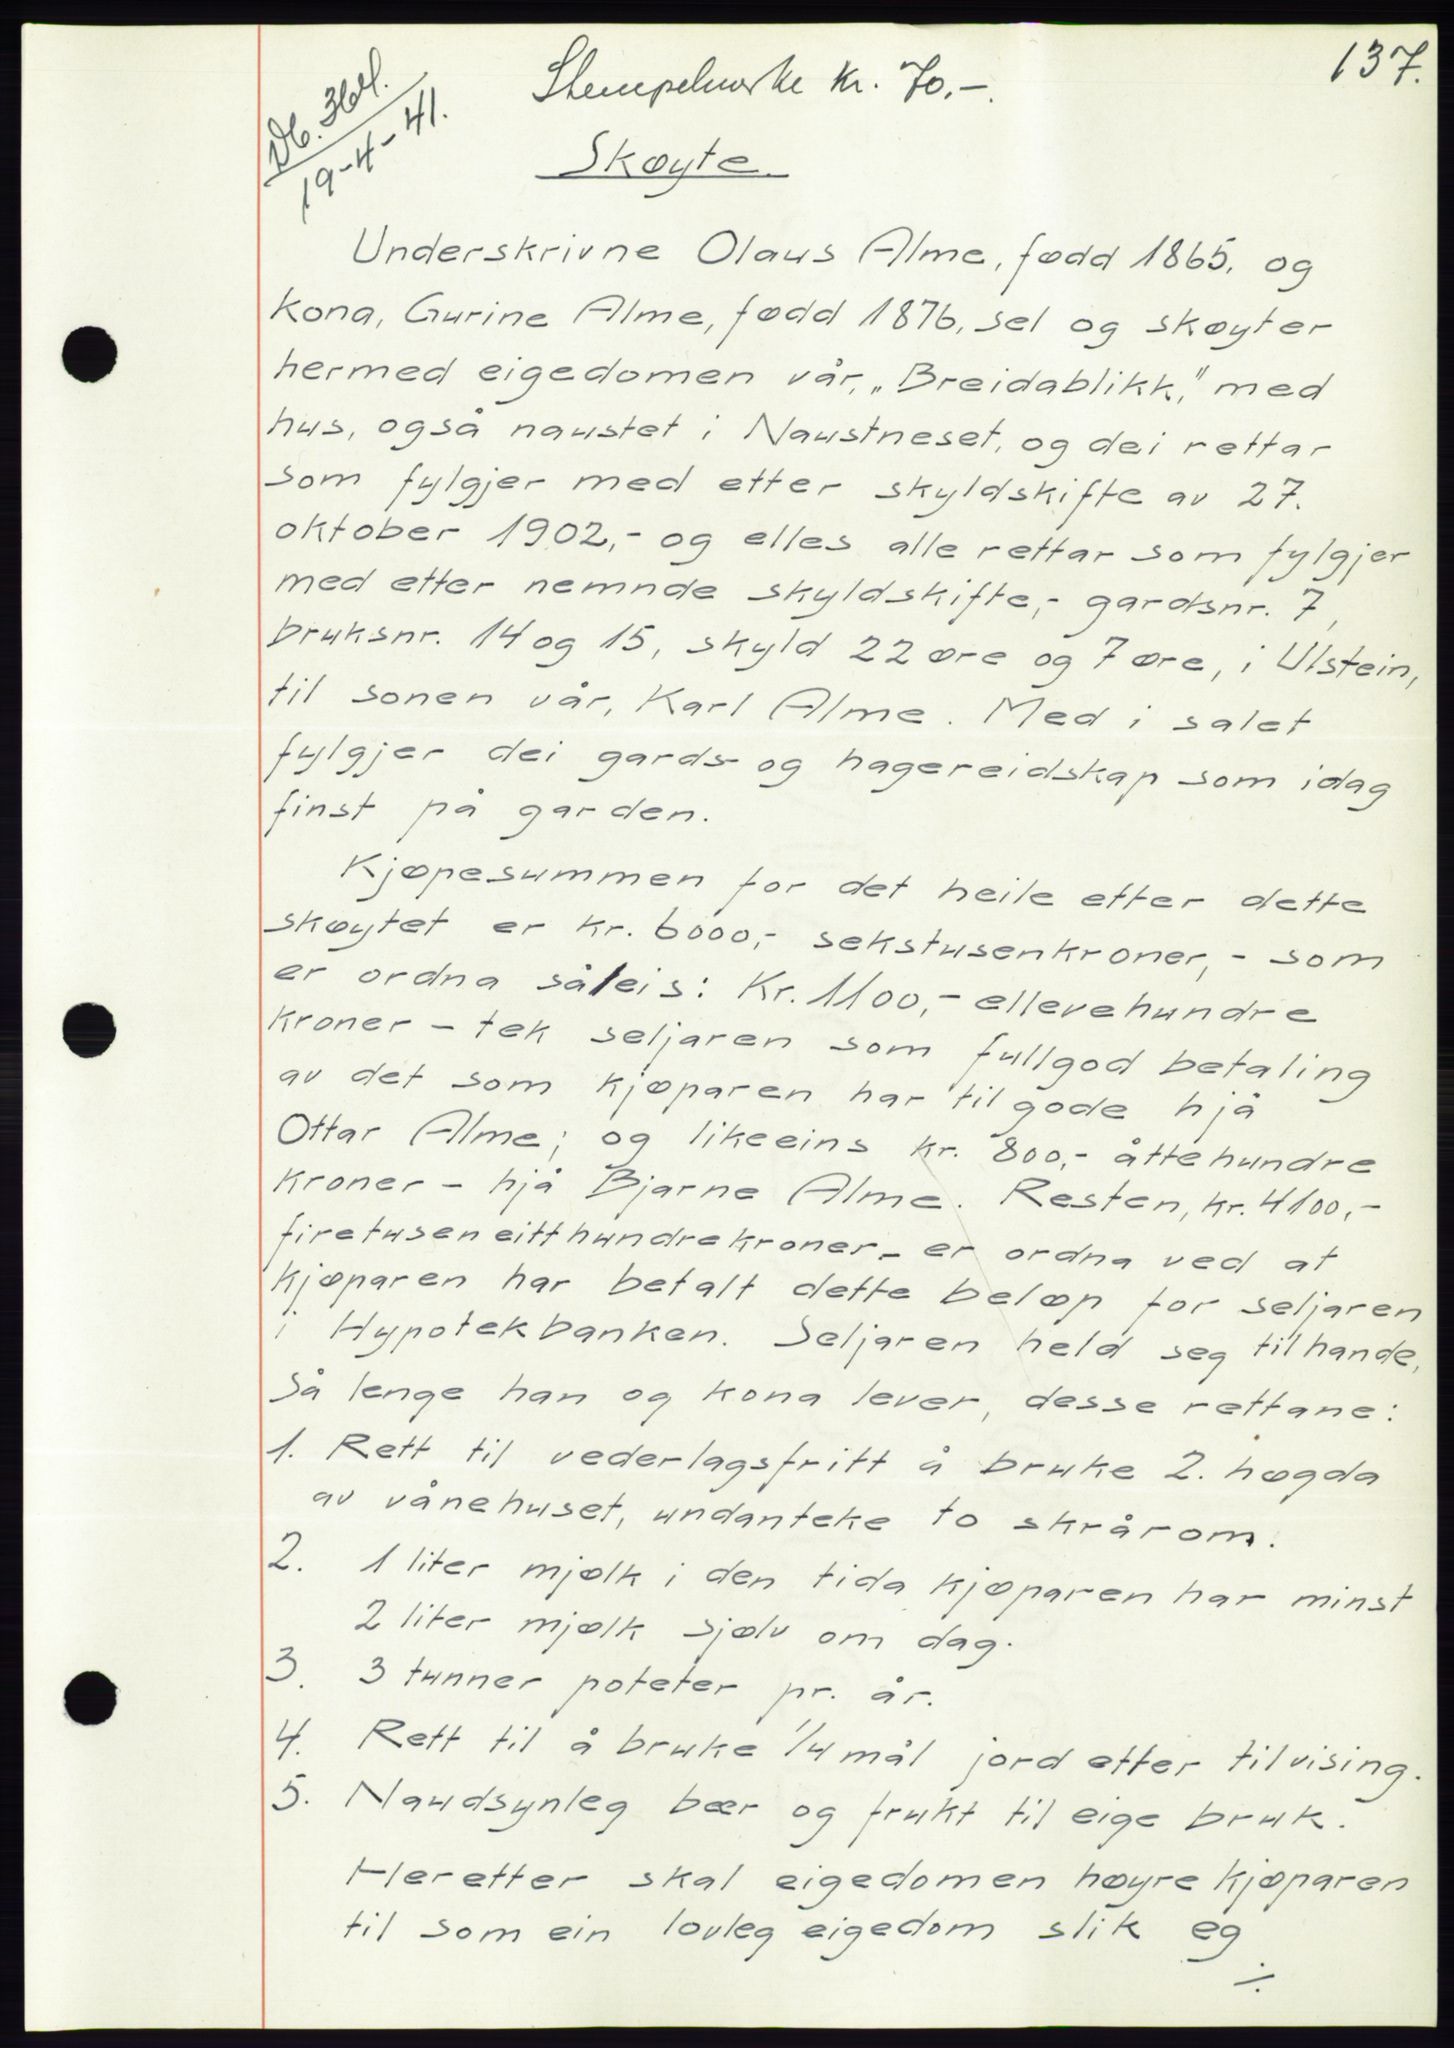 137.
Stempelmerke kr. 70.-.
19-4-41.
Skøyte.
Underskrivne Olaus Alme, fødd 1865, og
kona, Gurine Alme, fødd 1876, sel og skøyter
hermed eigedomen vår, „Breidablikk," med
hus, også naustet i Naustneset, og dei rettar
som fylgjer med etter skyldskifte av 27.
oktober 1902,- og elles alle rettar som fylgjer
med etter nemnde skyldskifte,- gardsnr. 7,
bruksnr. 14 og 15, skyld 22 øre og 7 øre, i Ulstein,
til sonen vår, Karl Alme. Med i salet
fylgjer dei gards- og hagereidskap som idag
finst på garden.
Kjøpesummen for det heile etter dette
skøytet er kr. 6000,- sekstusenkroner,- som
er ordna såleis: Kr. 1100,- ellevehundre
kroner - tek seljaren som fullgod betaling
av det som kjøparen har tilgode hjå
Ottar Alme; og likeeins kr. 800,- åttehundre
kroner - hjå Bjarne Alme. Resten, kr. 4100,-
firetuseneitthundrekroner - er ordna ved at
kjøparen har betalt dette beløp for seljaren
i Hypotekbanken. Seljaren held seg tilhande,
så lenge han og kona lever, desse rettane:
1. Rett til vederlagsfritt å bruke 2. høgda
av vånehuset, undanteke to skrårom.
2. 1 liter mjølk i den tida kjøparen har minst
2 liter mjølk sjølv om dag.
3. 3 tunner poteter pr. år.
4. Rett til å bruke 1/4 mål jord etter tilvising.
5. Naudsynleg bær og frukt til eige bruk.
Heretter skal eigedomen høyre kjøparen
til som ein lovleg eigedom slik eg
./.